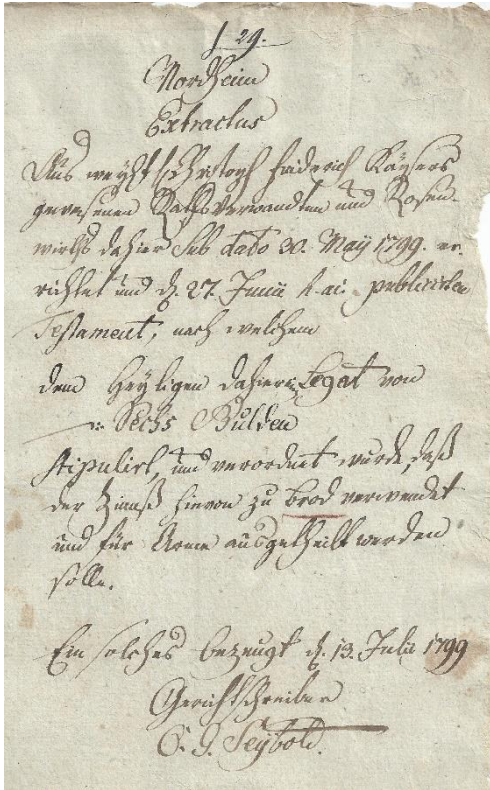 29.
Nordheim
Extractus
Aus weyst Christoph Friderich Kaysers
gewesenen Rathsverwandten und Rosen-
wirths dahier sub dato 30. Maÿ 1799. er-
richtet und d. 27. Junii h. ai. publicirten
Testament, nach welchem
dem Heyligen dahier Legat von
Sechs Gulden
stipulirt, und verordnet wurde, daß
der Zinnß hievon zu Brod verwendet
und für Arme ausgetheilt werden
solle.
Ein solches bezeugt d. 13. Julii 1799
Gerichtschreiber
C. J. Seybold.